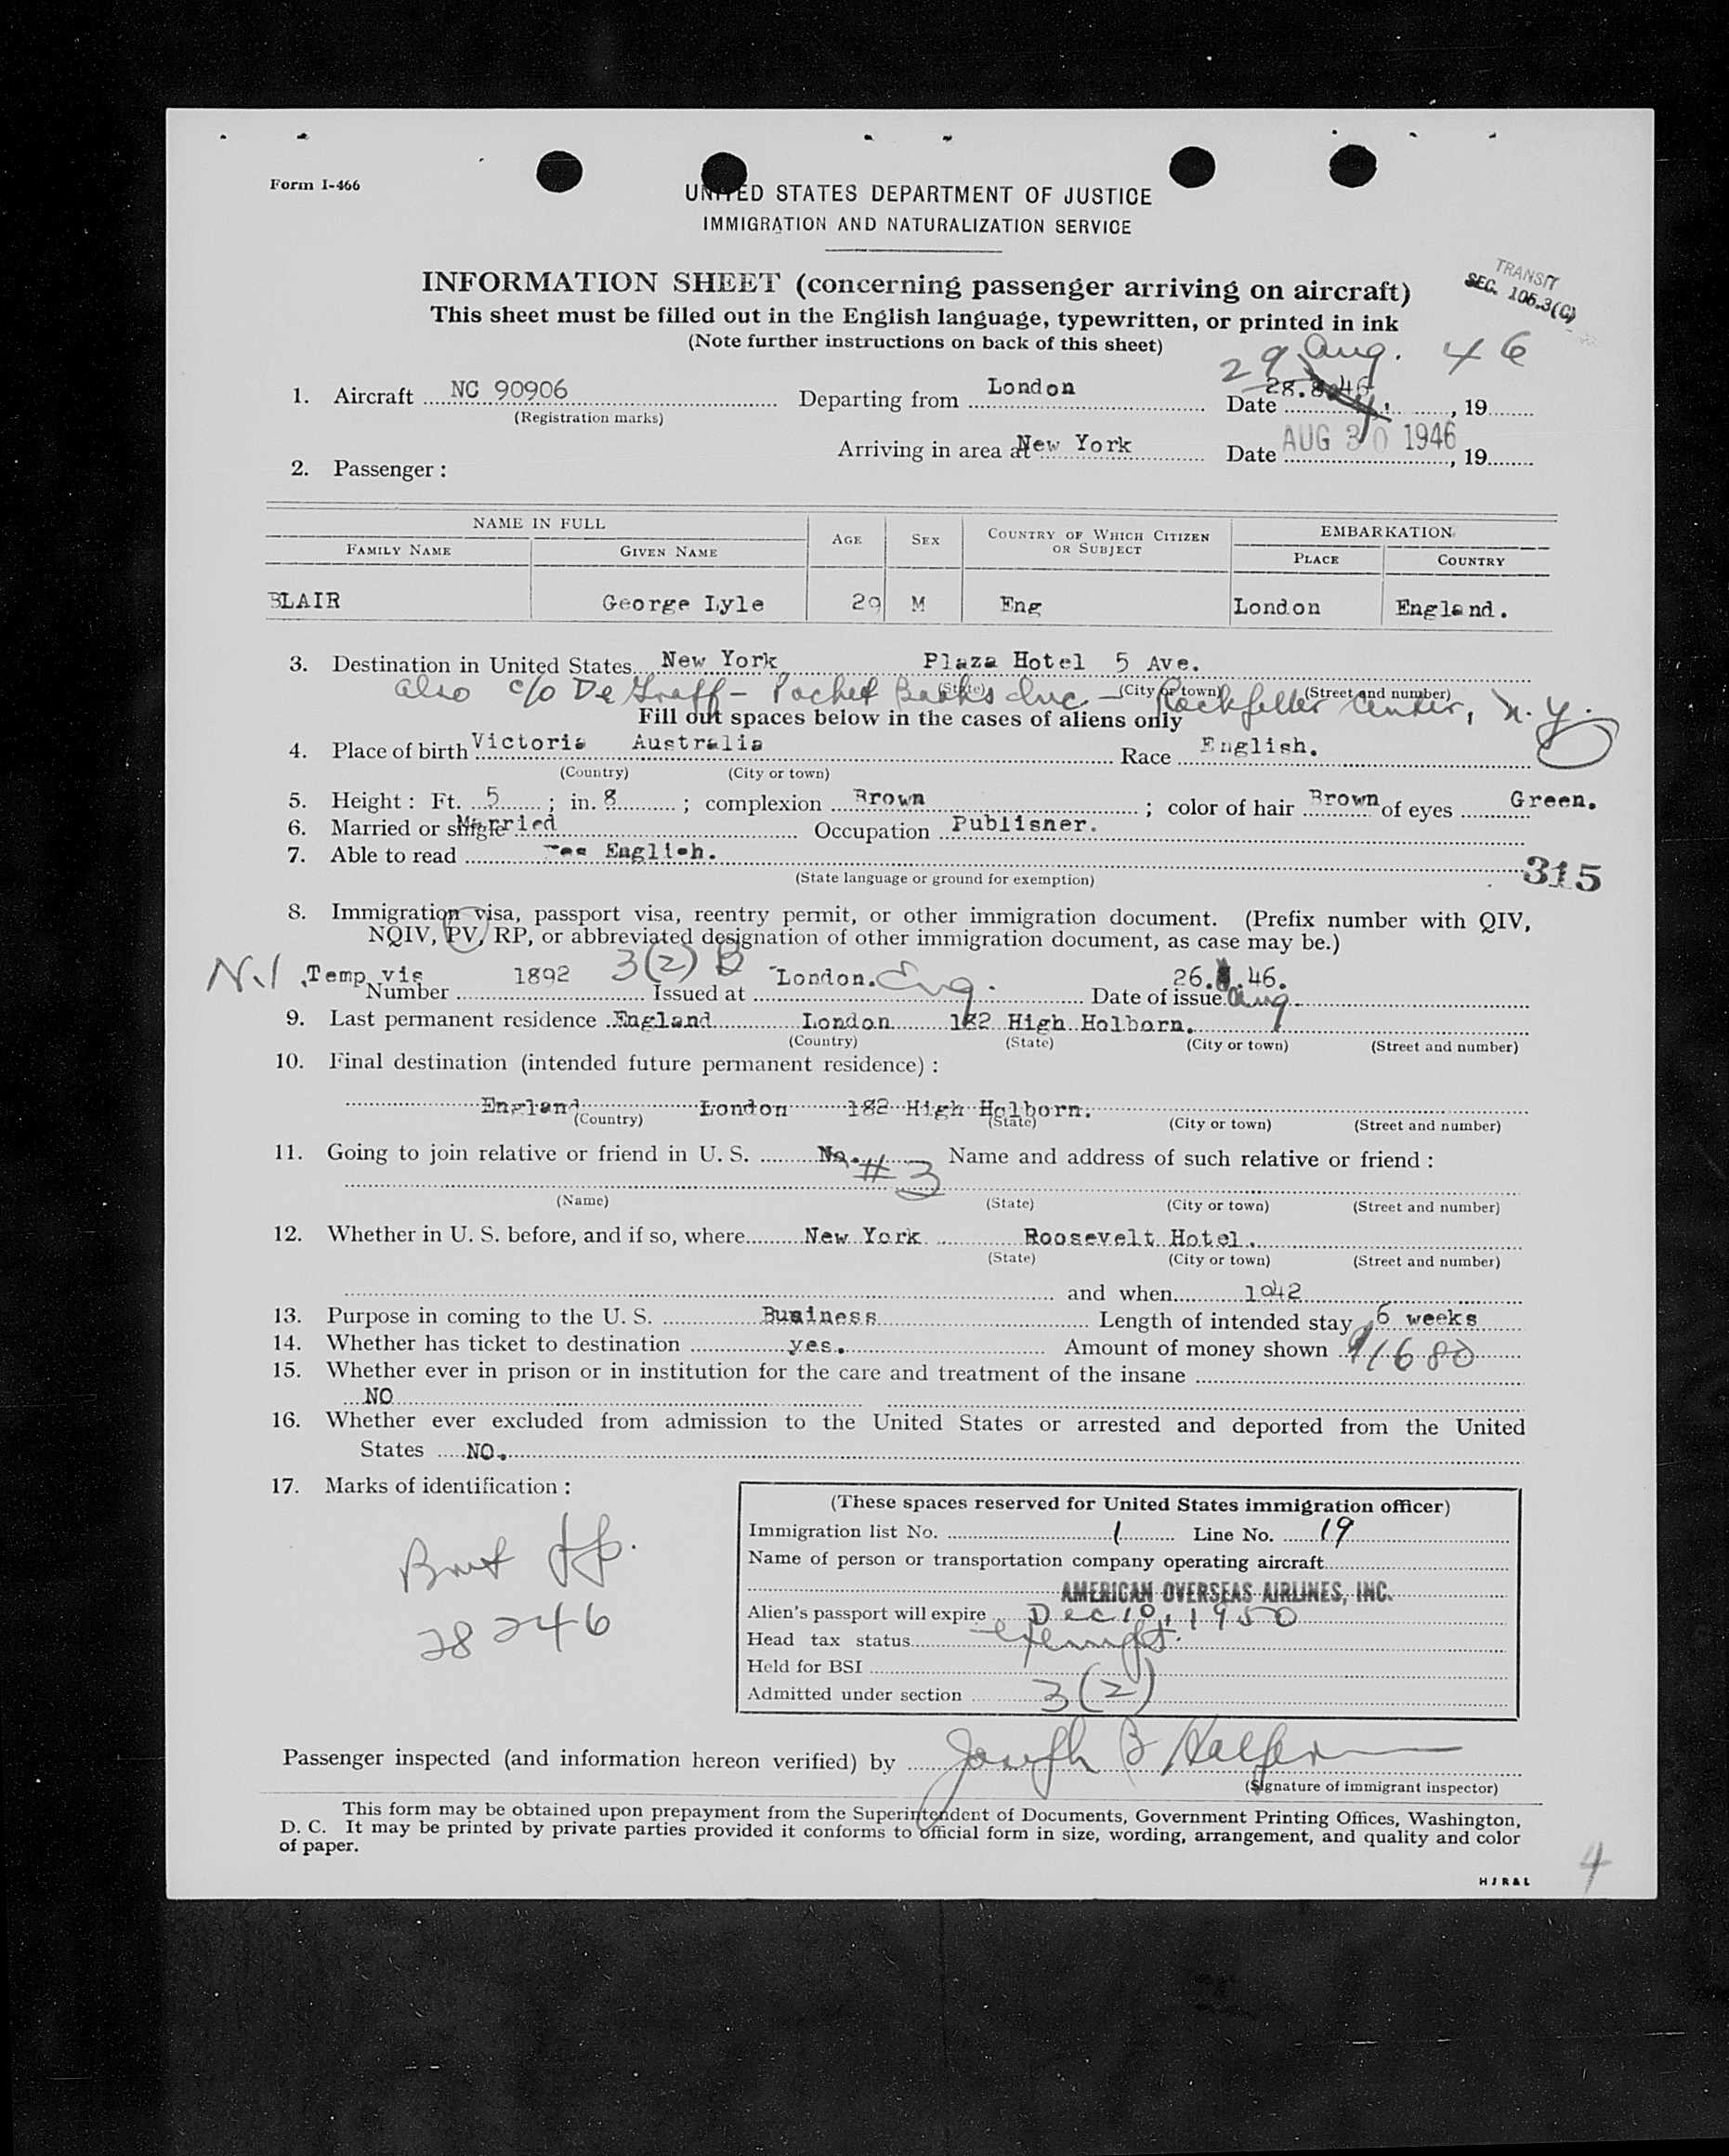 Form I-466
UNITED STATES DEPARTMENT OF JUSTICE
IMMIGRATION AND NATURALIZATION SERVICE
INFORMATION SHEET (concerning passenger arriving on aircraft)
TRANSIT
SEC. 105.3(C)
This sheet must be filled out in the English language, typewritten, or printed in ink
(Note further instructions on back of this sheet)
29 Aug. 46
1. Aircraft NC 90906 Departing from London Date 28.8.46, 19
(Registration marks)
Arriving in area at New York Date AUG 30 1946, 19
2. Passenger :
NAME IN FULL AGE SEX COUNTRY OF WHICH CITIZEN OR SUBJECT EMBARKATION
FAMILY NAME GIVEN NAME PLACE COUNTRY
BLAIR George Lyle 29 M Eng London England.
3. Destination in United States New York Plaza Hotel 5 Ave.
(State) (City or town) (Street and number)
also c/o De Graff - Pocket Books Inc. - Rockfeller Center, N.Y.
Fill out spaces below in the cases of aliens only
4. Place of birth Victoria Australia Race English.
(Country) (City or town)
5. Height : Ft. 5 ; in. 8 ; complexion Brown ; color of hair Brown of eyes Green.
6. Married or single Married Occupation Publisher.
7. Able to read Yes English.
(State language or ground for exemption)
315
8. Immigration visa, passport visa, reentry permit, or other immigration document. (Prefix number with QIV,
NQIV, PV, RP, or abbreviated designation of other immigration document, as case may be.)
N.I. Temp vis 1892 3(2) B London. Eng. 26.8.46.
Number Issued at Date of issue Aug.
9. Last permanent residence England London 182 High Holborn.
(Country) (State) (City or town) (Street and number)
10. Final destination (intended future permanent residence) :
England London 182 High Holborn.
(Country) (State) (City or town) (Street and number)
11. Going to join relative or friend in U. S. No. #3 Name and address of such relative or friend :
(Name) (State) (City or town) (Street and number)
12. Whether in U. S. before, and if so, where New York Roosevelt Hotel.
(State) (City or town) (Street and number)
and when 1942
13. Purpose in coming to the U. S. Business Length of intended stay 6 weeks
14. Whether has ticket to destination yes. Amount of money shown $1680
15. Whether ever in prison or in institution for the care and treatment of the insane
NO
16. Whether ever excluded from admission to the United States or arrested and deported from the United
States NO.
17. Marks of identification :
28246
(These spaces reserved for United States immigration officer)
Immigration list No. 1 Line No. 19
Name of person or transportation company operating aircraft
AMERICAN OVERSEAS AIRLINES, INC.
Alien's passport will expire Dec 10, 1950
Head tax status exempt.
Held for BSI
Admitted under section 3(2)
Passenger inspected (and information hereon verified) by Joseph B Halpern
(Signature of immigrant inspector)
This form may be obtained upon prepayment from the Superintendent of Documents, Government Printing Offices, Washington,
D. C. It may be printed by private parties provided it conforms to official form in size, wording, arrangement, and quality and color
of paper.
HJR&L
4